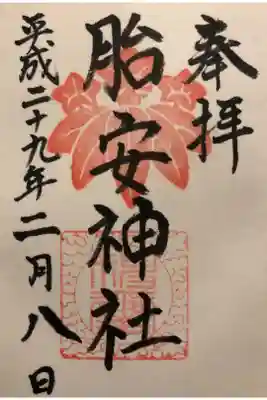 奉拝
胎安神社
平成二十九年二月八日